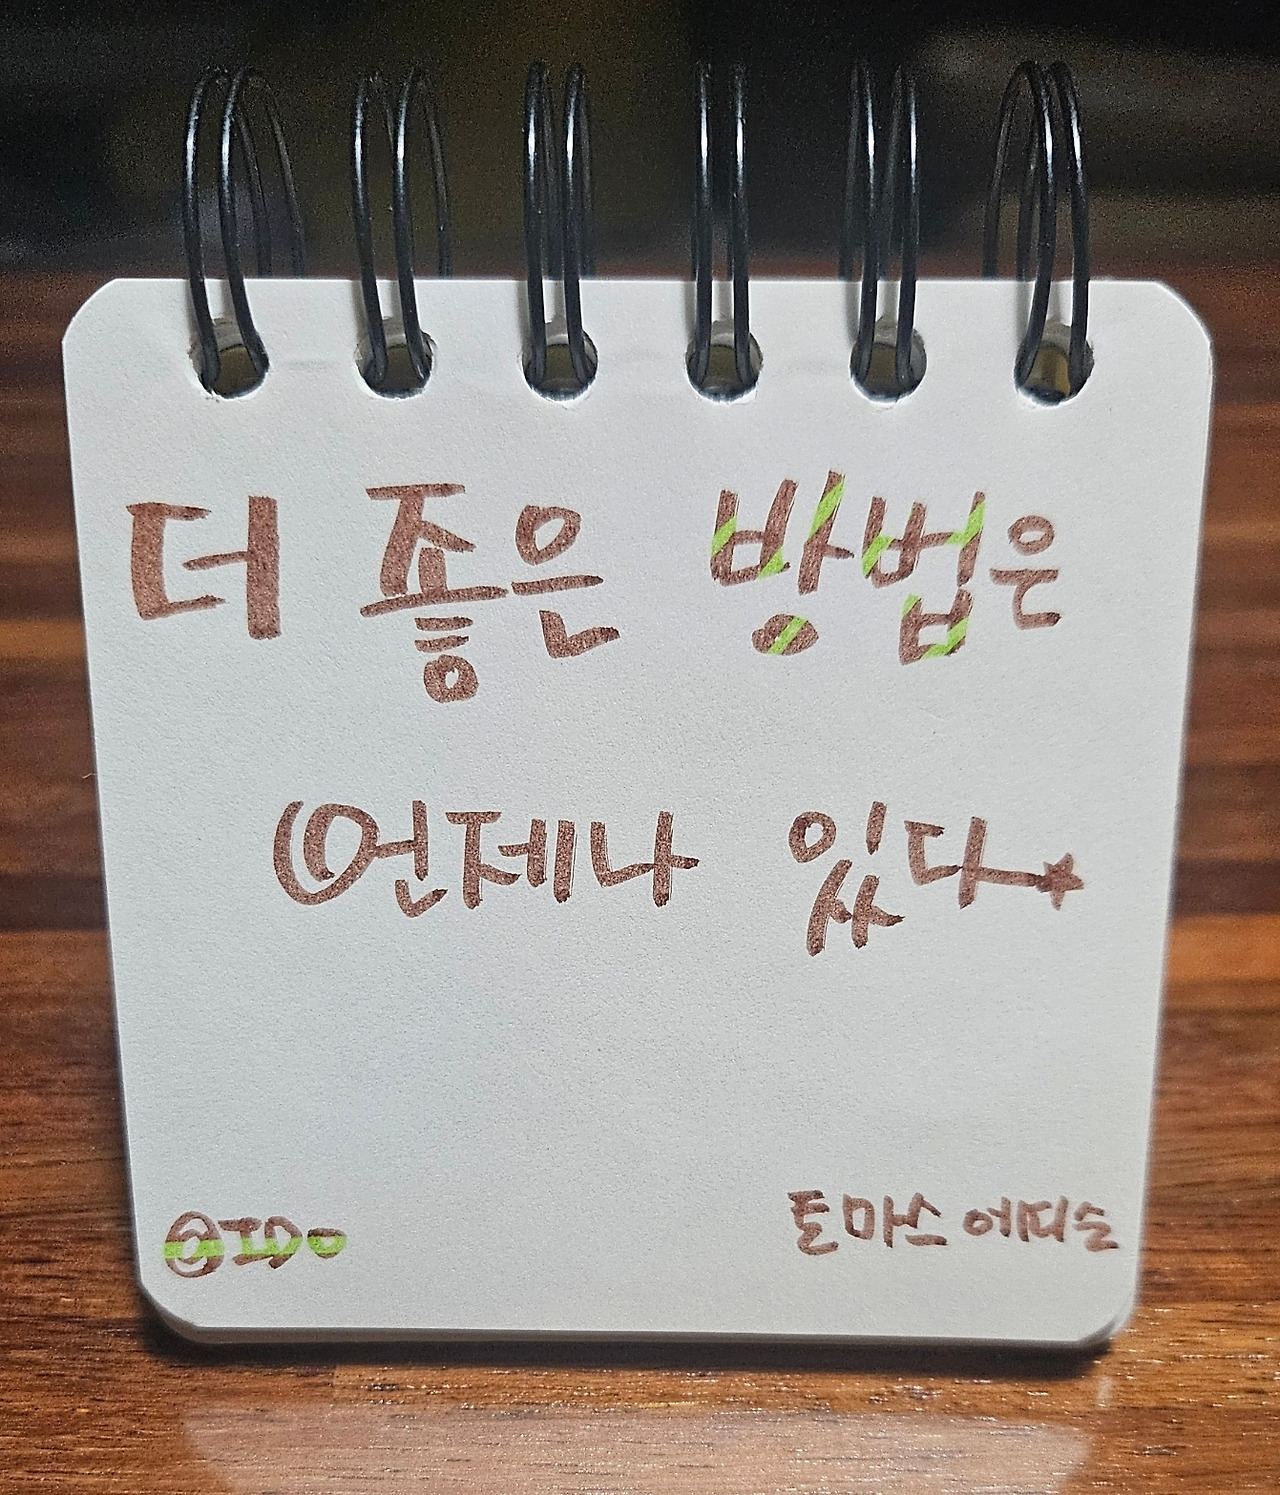 더 좋은 방법은
언제나 있다
@IDO
토마스 에디슨